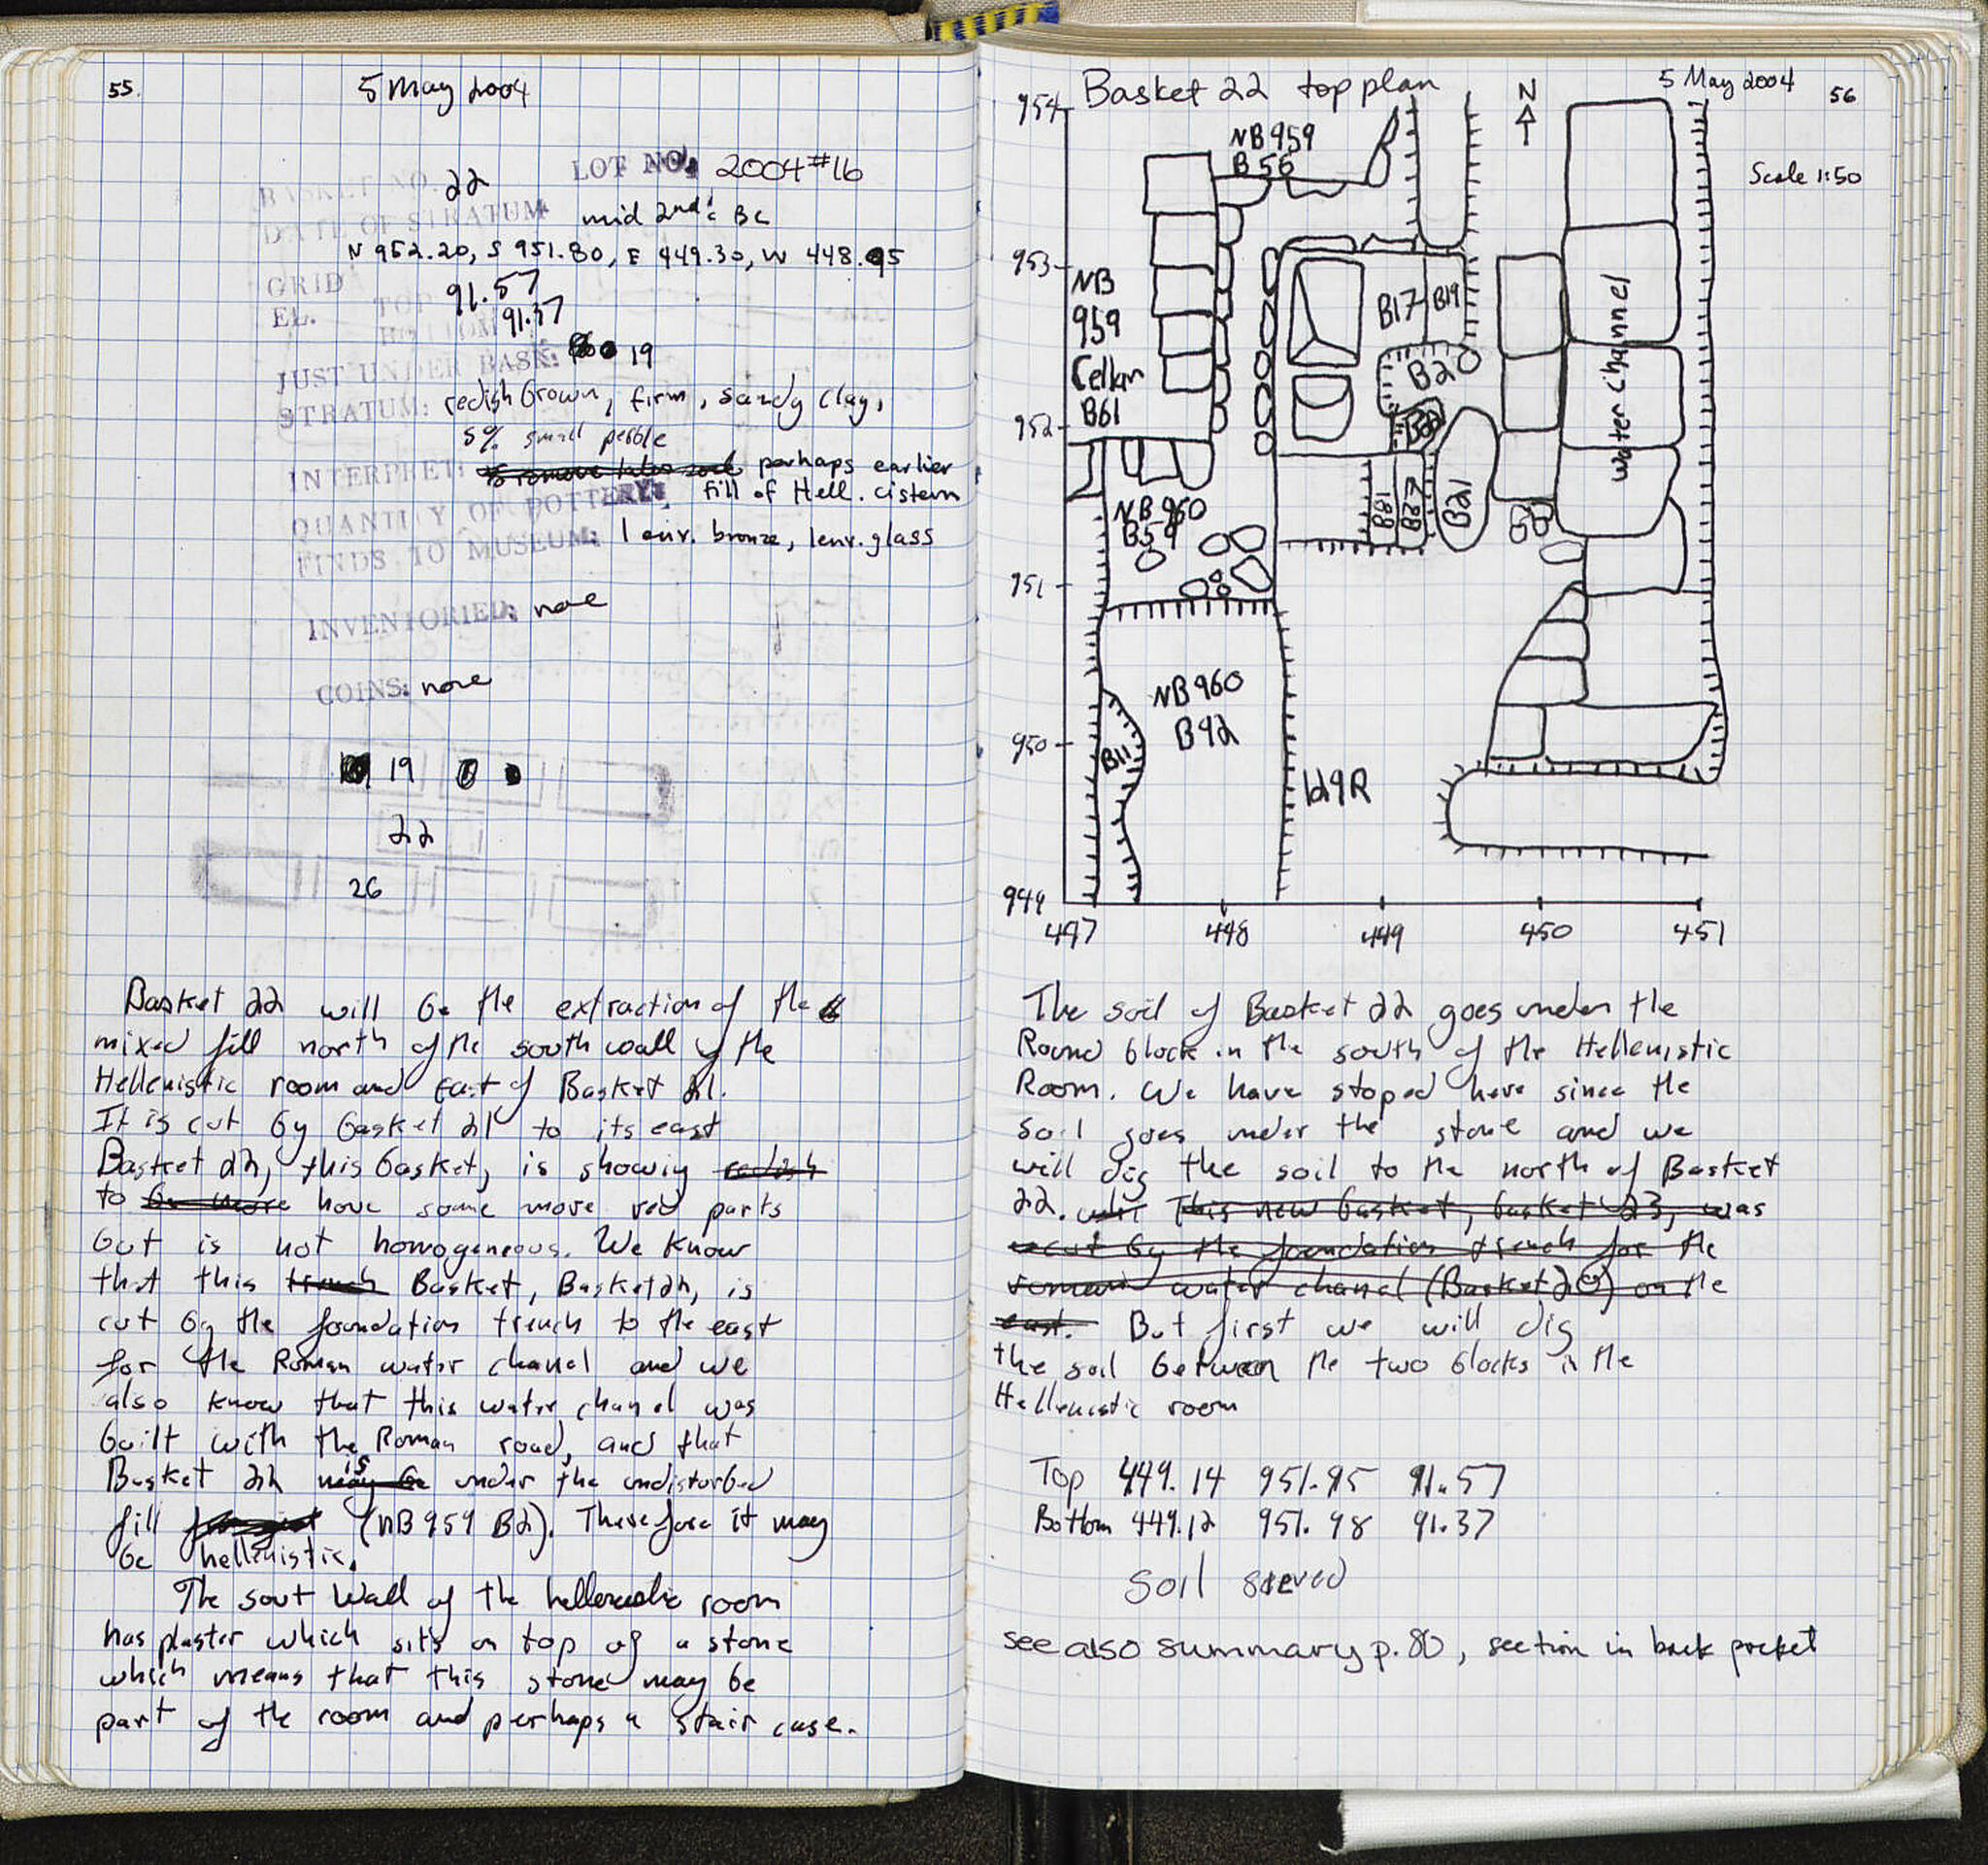 55.
5 May 2004
BASKET NO. 22
LOT NO. 2004 #16
DATE OF STRATUM: mid 2nd c BC
N 952.20, S 951.80, E 449.30, W 448.95
GRID
EL. TOP 91.57
BOTTOM 91.37
JUST UNDER BASK: 19
STRATUM: redish brown, firm, sandy clay,
5% small pebble
INTERPRET: perhaps earlier
fill of Hell. cistern
QUANTITY OF POTTERY:
FINDS TO MUSEUM: 1 env. bronze, 1 env. glass
INVENTORIED: none
COINS: none
19
22
26
Basket 22 will be the extraction of the
mixed fill north of the south wall of the
Hellenistic room and East of Basket 21.
It is cut by basket 21 to its east
Basket 22, this basket, is showing redish
to be more have some more red parts
but is not homogeneous. We know
that this trench Basket, Basket 22, is
cut by the foundation trench to the east
for the Roman water chanel and we
also know that this water chanel was
built with the Roman road, and that
Basket 22 may be is under the undisturbed
fill (NB 959 B2). Therefore it may
be hellenistic.
The sout wall of the hellenistic room
has plaster which sits on top of a stone
which means that this stone may be
part of the room and perhaps a stair case.
Basket 22 top plan
5 May 2004
56
N
Scale 1:50
954
953
952
951
950
949
447
448
449
450
451
NB 959
B 56
NB
959
Cellar
B61
B17
B19
B20
B22
B21
B18
B23
water channel
NB 960
B59
NB 960
B92
B11
The soil of Basket 22 goes under the
Round block in the south of the Hellenistic
Room. We have stoped here since the
soil goes under the stone and we
will dig the soil to the north of Basket
22. This new basket, basket 23, was
cut by the foundation trench for the
roman water chanel (Basket 20) on the
east. But first we will dig
the soil between the two blocks in the
Hellenistic room
Top 449.14 951.95 91.57
Bottom 449.12 951.98 91.37
Soil sieved
see also summary p. 80, section in back pocket